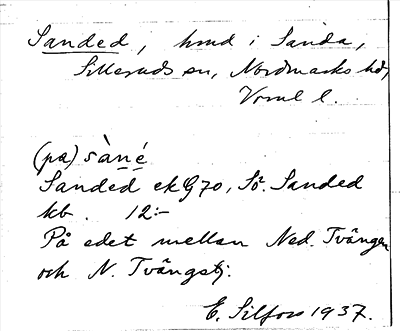 Sanded, hmd i Sanda,
Silleruds sn, Nordmarks hd,
Vrml l.
(pa) sàné
Sanded ek G70, Sö. Sanded
kb. 12:-
På edet mellan Ned. Tvängen
och N. Tvängstj.
E. Silfors 1937.